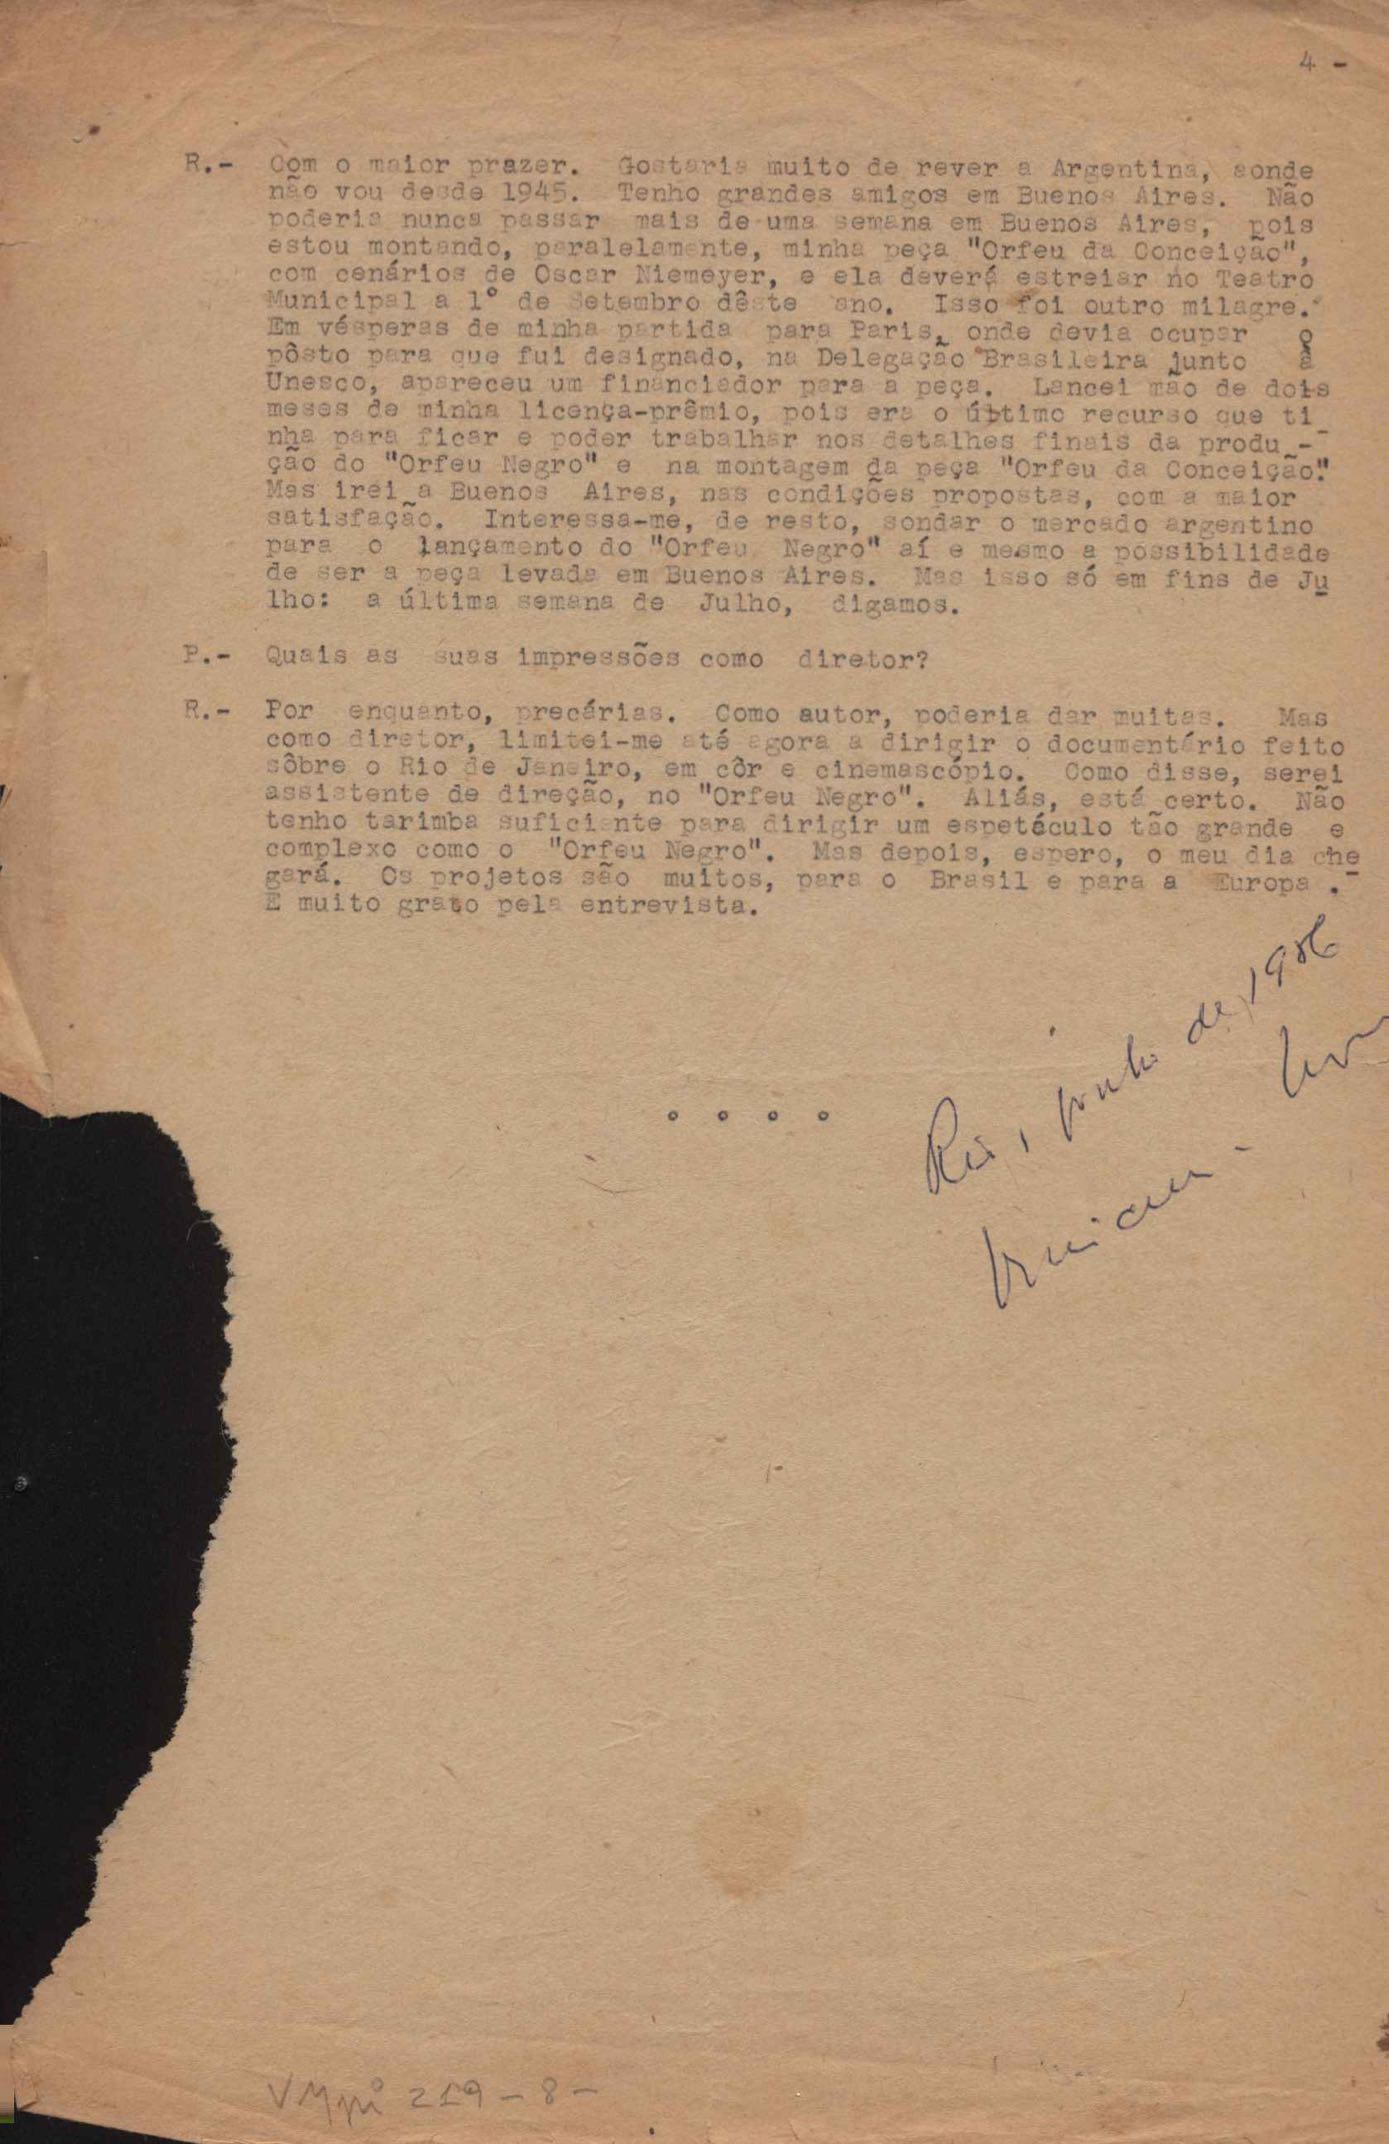 4 -
R.- Com o maior prazer. Gostaria muito de rever a Argentina, aonde
não vou desde 1945. Tenho grandes amigos em Buenos Aires. Não
poderia nunca passar mais de uma semana em Buenos Aires, pois
estou montando, paralelamente, minha peça "Orfeu da Conceição",
com cenários de Oscar Niemeyer, e ela deverá estreiar no Teatro
Municipal a 1º de Setembro dêste ano. Isso foi outro milagre.
Em vésperas de minha partida para Paris, onde devia ocupar o
pôsto para que fui designado, na Delegação Brasileira junto à
Unesco, apareceu um financiador para a peça. Lancei mão de dois
meses de minha licença-prêmio, pois era o último recurso que ti_
nha para ficar e poder trabalhar nos detalhes finais da produ_-
ção do "Orfeu Negro" e na montagem da peça "Orfeu da Conceição".
Mas irei a Buenos Aires, nas condições propostas, com a maior
satisfação. Interessa-me, de resto, sondar o mercado argentino
para o lançamento do "Orfeu Negro" aí e mesmo a possibilidade
de ser a peça levada em Buenos Aires. Mas isso só em fins de Ju
lho: a última semana de Julho, digamos.
P.- Quais as suas impressões como diretor?
R.- Por enquanto, precárias. Como autor, poderia dar muitas. Mas
como diretor, limitei-me até agora a dirigir o documentário feito
sôbre o Rio de Janeiro, em côr e cinemascópio. Como disse, serei
assistente de direção, no "Orfeu Negro". Aliás, está certo. Não
tenho tarimba suficiente para dirigir um espetáculo tão grande e
complexo como o "Orfeu Negro". Mas depois, espero, o meu dia che
gará. Os projetos são muitos, para o Brasil e para a Europa .-
E muito grato pela entrevista.
Rio, junho de 1956
. . . .
219 - 8 -